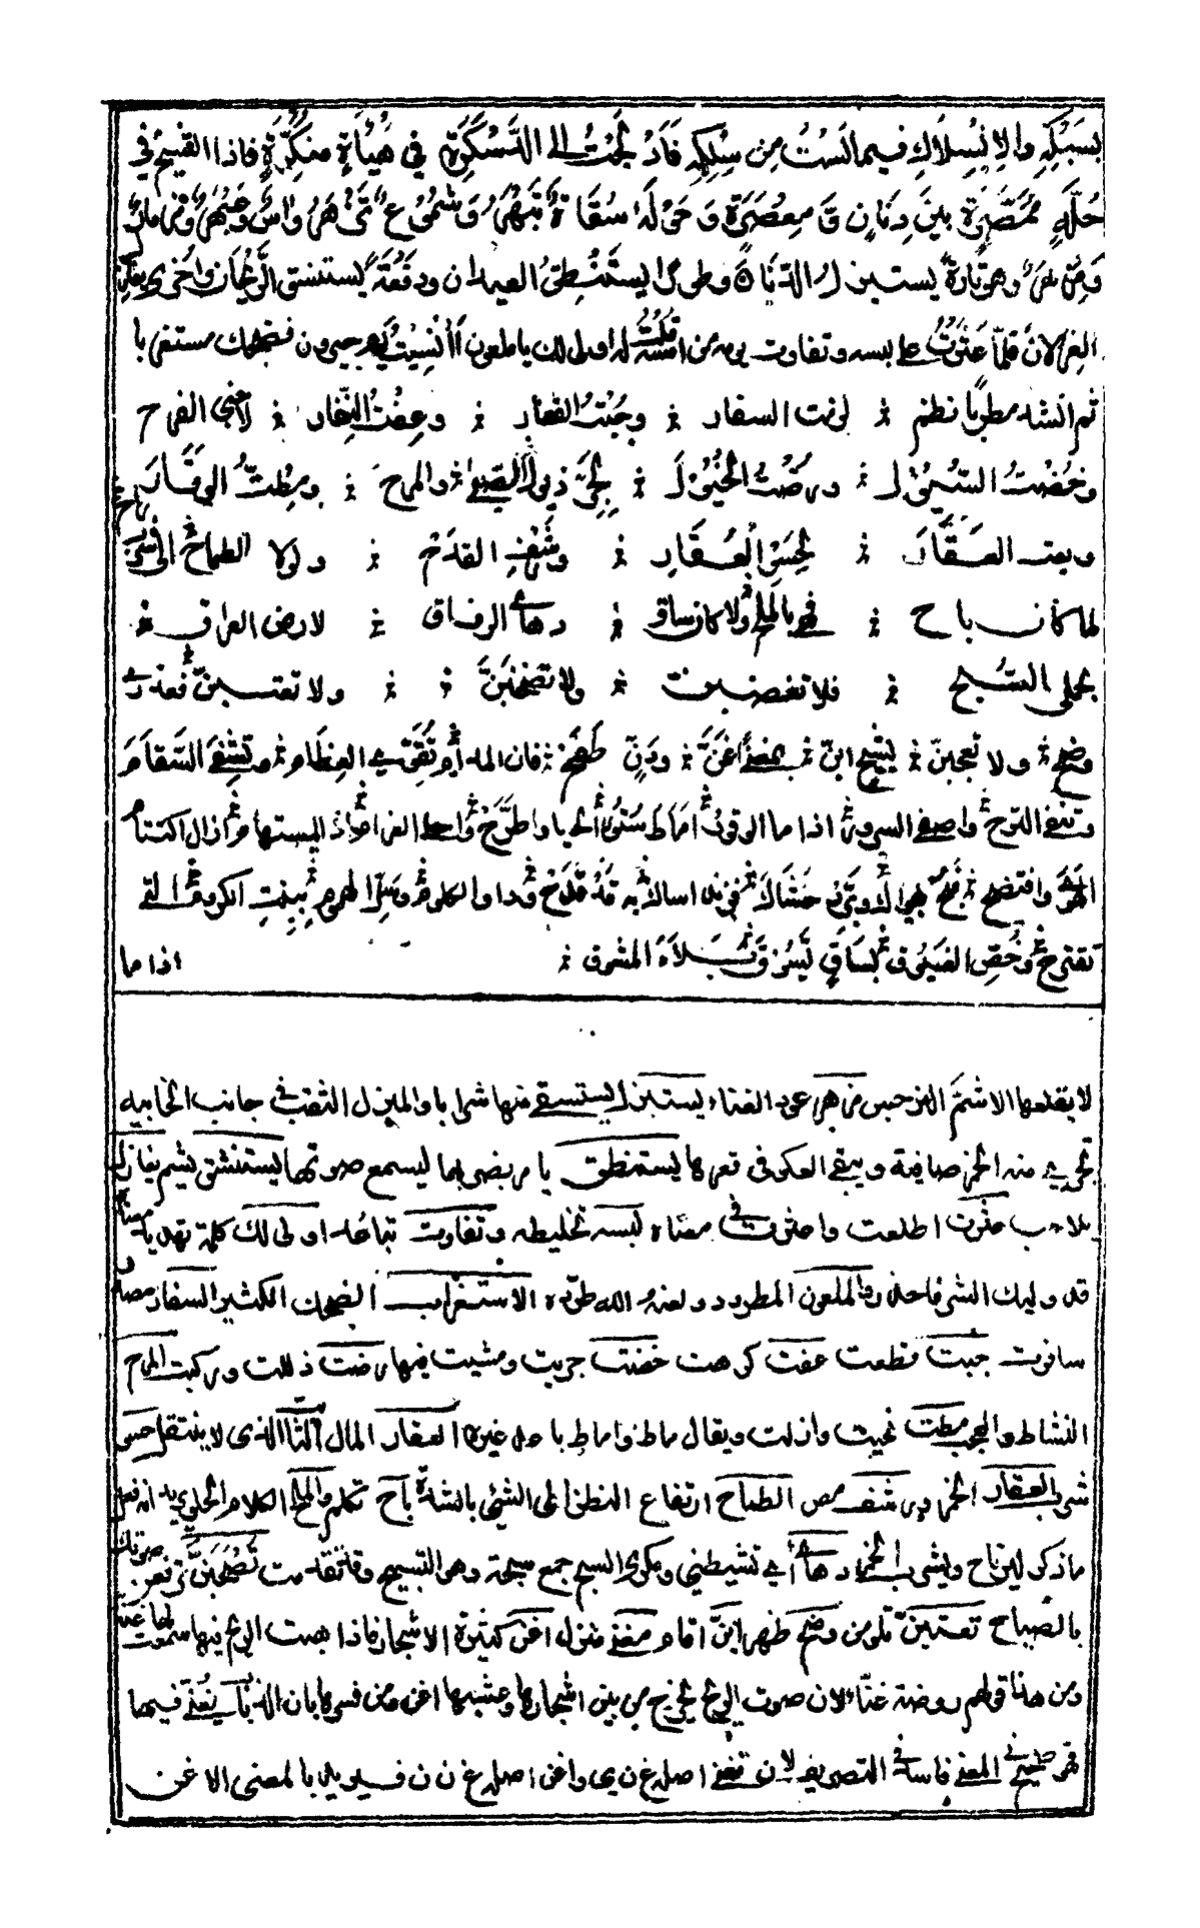 بسَبْكِه والانسِلاكِ فيما لَسْتُ مِن سِلكِه فَادّلجْتُ الى الدَّسْكَرَةِ في هَيْأَةٍ منكِّرَةٍ فاذا الشيخ في
حُلّةٍ مُمَصَّرَةٍ بينَ دِنَانٍ وَمِعْصَرَةٍ وَحَوْلَهُ سُقَاةٌ تَبْهَرُ وَشُمُوعٌ تَزْهَرُ وَاٰسٌ وعَبْهَرٌ ومزمارٌ
وَمِزْهَرٌ وهو تارةً يستبزلُ الدِّنَانَ وطورًا يَستَنْطِقُ العيدان ودَفعَةً يستنشق الرَّيحَانَ واُخرى يغازل
الغِزلانَ فلمّا عَثَرْتُ على لبسه وتفاوت يومه من امسه قلت له اولى لك يا ملعون أَأُنْسِيْتَ يوم جيرون فضحك مستغربا
ثم انشد مطرّبًا نظم ؞ لزمت السفار ؞ وجُبْتُ القفار ؞ وعِفْتُ النِّفار ؞ لاجني الفرح
وخُضْتُ السُّيُوْلَ ؞ ورُضْتُ الخُيُوْلَ ؞ لِجَرِّ ذيول الصِّبى ؞ والمرحَ ؞ ومِطْتُ الوَقَارَ
وبعت العَقَارَ ؞ لِحَسْوِ الْعُقَارِ ؞ ورَشْفِ القدَحْ ؞ ولولا الطماح الى شرب راح
لما كان باح ؞ فمي بالملح ولا كان ساق ؞ دهائي الرفاق ؞ لارض العراق ؞
بحملى السُّبَح ؞ فلا تغضبنّ ؞ ولا تصخبَنَّ ؞ ؞ ولا تعتبنّ فعذري
وضح ؞ ولا تعجبنّ ؞ لشيخ ابنّ ؞ بمغنًى اغَنَّ ؞ ودَنٍّ طَفَحْ ؞ فان المدام تُقَوّي العِظَام ؞ وتشفي السَّقَامَ
وتنفي الترح واصفى السرور اذا ما الوقور اَمَاطَ سُتُورَ الحيا واطَّرَحْ واحلى الغرام اذا المستهام ازال اكتتام
الهوى وافتضح فبُحْ بهواك وبرِّد حَشَاكَ فزند اساك به قَدْ قَدَحْ وداو الكلوم وسَلِّ الهموم بِبِنتِ الكروم التي
تقترح وخُصِّ الغَبُوقَ بسَاقٍ يَّسُوقُ بَلاءَ المشوق ؞
اذا ما
لا يقلعها الا شمَّ النرجس مزهر عود الغناء يستبزل يستسقى منها شرابا والمبزل الثقب في جانب الخابيه
تجري منه الخمر صافية ويبقى العكر فى قعرها يستنطق يامر بضربها ليسمع صوتها يستنشق يشم يغازل
يلاعب عثرت اطلعت واعثرت في معناه لبسه تخليطه وتفاوت تباعد اولى لك كلمة تهديد معناه
قد وليك الشر فاحذره والملعون المطرود ولعنه الله طرده الاستغراب الضحك الكثير السفار مصدر
سافرت جبت قطعت عفت كرهت خضت جريت ومشيت فيها رضت ذللت وركبت المرح
النشاط والعجب مطت نحيت وازلت ويقال ماط واماط باعد غيره العقار المال الثابت الذي لا ينتقل حسو
شرب العقار الخمر ورشف مص الطماح ارتفاع النظر الى الشئ بالشدة باح تكلم والملح الكلام الحلو يريد انه فعل
ما ذكر لينزاح ويشرب الخمر دهائي اي تشيطني ومكري السبح جمع سبحة وهو التسبيح وقد تقدمت تصخبنّ ترفعن صوتك
بالصياح تعتبنّ تلومن وضح ظهر ابنّ اقام مغنى منزل اغن كثيرة الاشجار فاذا هبت الريح فيها سمعت لها غنة
ومن هذا قولهم روضة غناء لان صوت الريح يخرج من بين اشجارها وعشبها اغن ومن فسرها بان الذباب يغني فيها
فهو صحيح في المعنى فاسد في التصريف لان تغنى اصله غ ن ي واغن اصله غ ن ن فسيويها بالمعنى الاغن